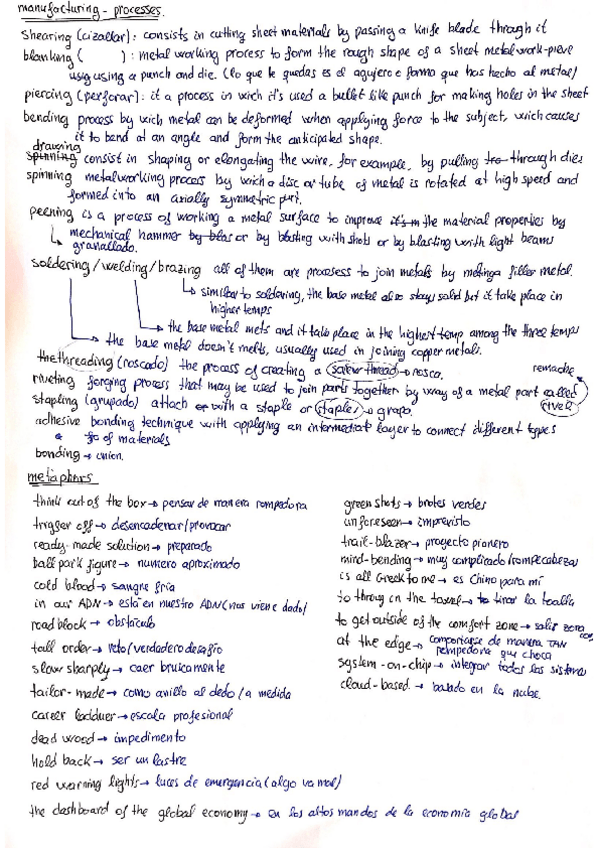 manufacturing - processes.
Shearing (cizallar): consists in cutting sheet materials by passing a knife blade through it
blanking ( ): metal working process to form the rough shape of a sheet metal work-pieve
using a punch and die. (lo que te quedas es el agujero o forma que has hecho al metal)
piercing (perforar): it a process in wich it's used a bullet like punch for making holes in the sheet
bending process by wich metal can be deformed when applying force to the subject, wich causes
it to bend at an angle and form the anticipated shape.
drawing
spinning consist in shaping or elongating the wire, for example, by pulling through dies
spinning metalworking process by wich a disc or tube of metal is rotated at high speed and
formed into an axially symmetric part.
peening is a process of working a metal surface to improve the material properties by
mechanical hammer or by blasting with shots or by blasting with light beams
granallado.
soldering/welding/brazing all of them are process to join metals by melting a filler metal.
similar to soldering, the base metal also stays solid but it take place in
higher temps
the base metal mets and it take place in the highest temp among the three temps
the base metal doesn't melts, usually used in joining copper metals.
threading (roscado) the process of creating a screw thread → rosca.
remache
riveting forging process that may be used to join parts together by way of a metal part called
rivet
stapling (grapado) attach with a staple or staples → grapa.
adhesive bonding technique with applying an intermediate layer to connect different types
of materials
bonding → union.
metaphors
think out of the box → pensar de manera rompedora
trigger off → desencadenar/provocar
ready-made solution → preparado
ball park figure → numero aproximado
cold blood → sangre fría
in our ADN → está en nuestro ADN (nos viene dado)
road block → obstáculo
tall order → reto/verdadero desafío
slow sharply → caer bruscamente
tailor-made → como anillo al dedo/a medida
career ladduer → escala profesional
dead wood → impedimento
hold back → ser un lastre
red warning lights → luces de emergencia (algo va mal)
the dashboard of the global economy → en los altos mandos de la economía global
green shots → brotes verdes
unforeseen → imprevisto
trail-blazer → proyecto pionero
mind-bending → muy complicado/rompecabeza
is all Greek to me → es Chino para mí
to throug on the towel → tirar la toalla
to get outside of the comfort zone → salir zona
at the edge → comportarse de manera TAN
rompedora que choca
system-on-chip → integrar todos los sistemas
cloud-based → basado en la nube.